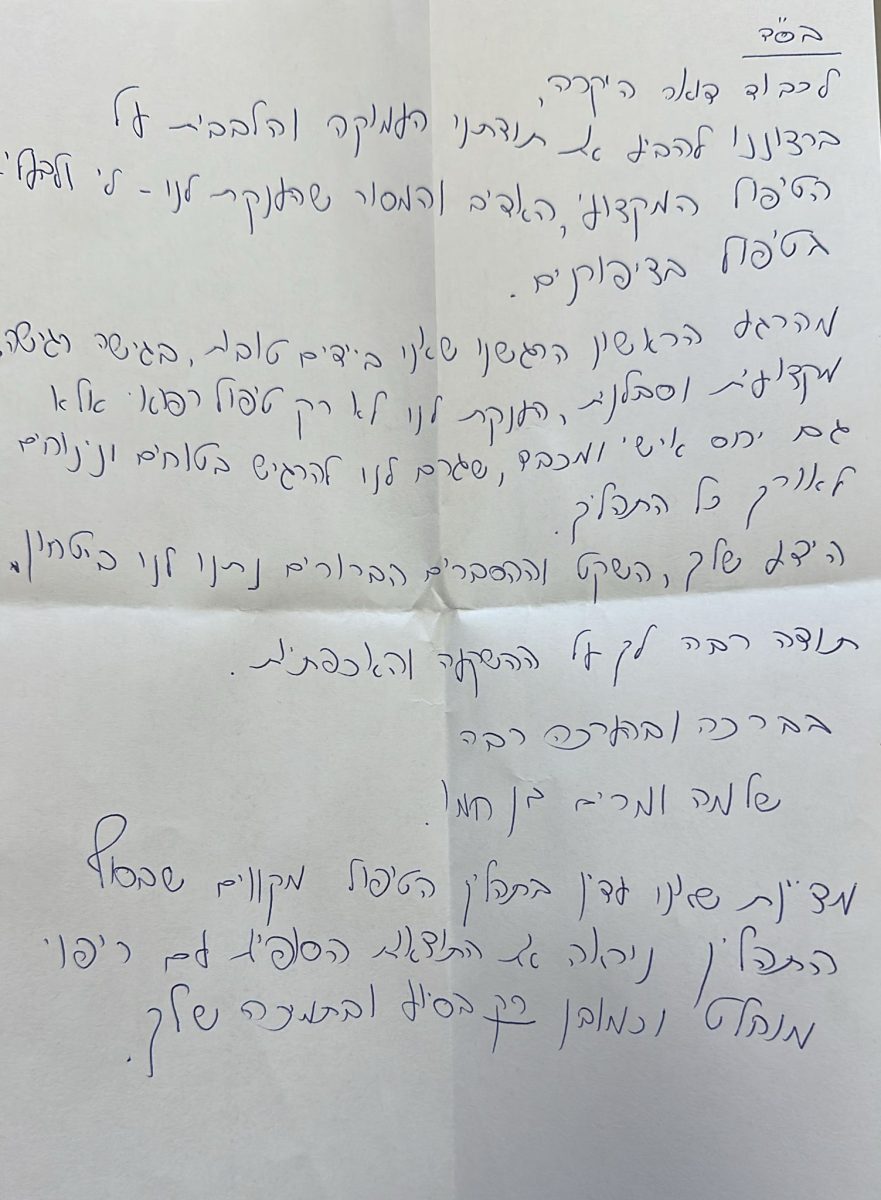 בס"ד
לכבוד דואר היקרה,
ברצוננו להביע את תודתנו העמוקה והלבבית על
הטיפול המקצועי, האדיב והמסור שהענקת לנו - לי ולבעלי.
בטיפול בציפורניים.
מהרגע הראשון הרגשנו שאנו בידיים טובות, בגישה רגישה,
מקצועית וסבלנית, הענקת לנו לא רק טיפול רפואי אלא
גם יחס אישי ומכבד, שגרם לנו להרגיש בטוחים ונינוחים
לאורך כל התהליך.
הידע שלך, השקט וההסברים הברורים נתנו לנו ביטחון.
תודה רבה לך על ההשקעה והאכפתיות.
בברכה ובהערכה רבה
שלמה ומרים בן חמו.
מציינת שאנו עדין בתהליך הטיפול מקווים שבסוף
התהליך ניראה את התוצאות הסופית עם ריפוי
מוחלט וכמובן רק בסיוע ובתמיכה שלך.